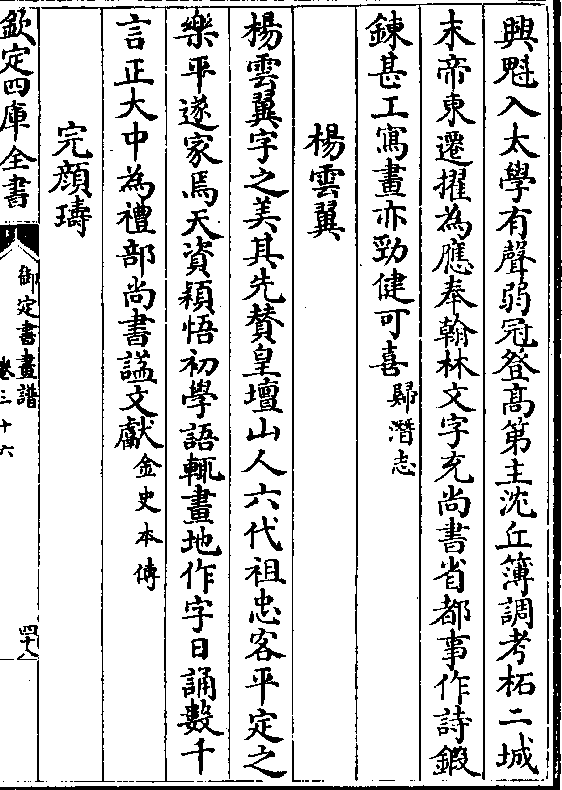 興魁入太學有聲弱冠登髙第主沈丘簿調考柘二城
末帝東遷擢為應奉翰林文字充尚書省都事作詩鍛
鍊甚工寫畫亦勁健可喜歸潛志
楊雲翼
楊雲翼字之美其先賛皇壇山人六代祖忠客平定之
樂平遂家焉天資穎悟初學語輒畫地作字日誦數千
言正大中為禮部尚書諡文獻金史本傳
完顔璹
欽定四庫全書
御定書畫譜
卷三十六
四十八